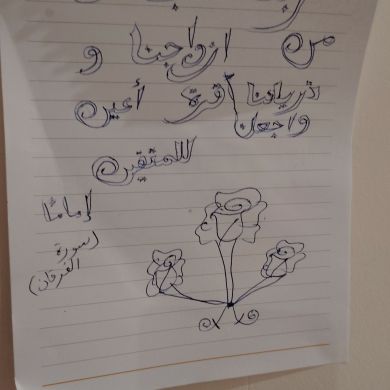 من ازواجنا و
ذرياتنا قرة أعين
واجعلنا
للمتقين
إمامًا
(سورة
الفرقان)